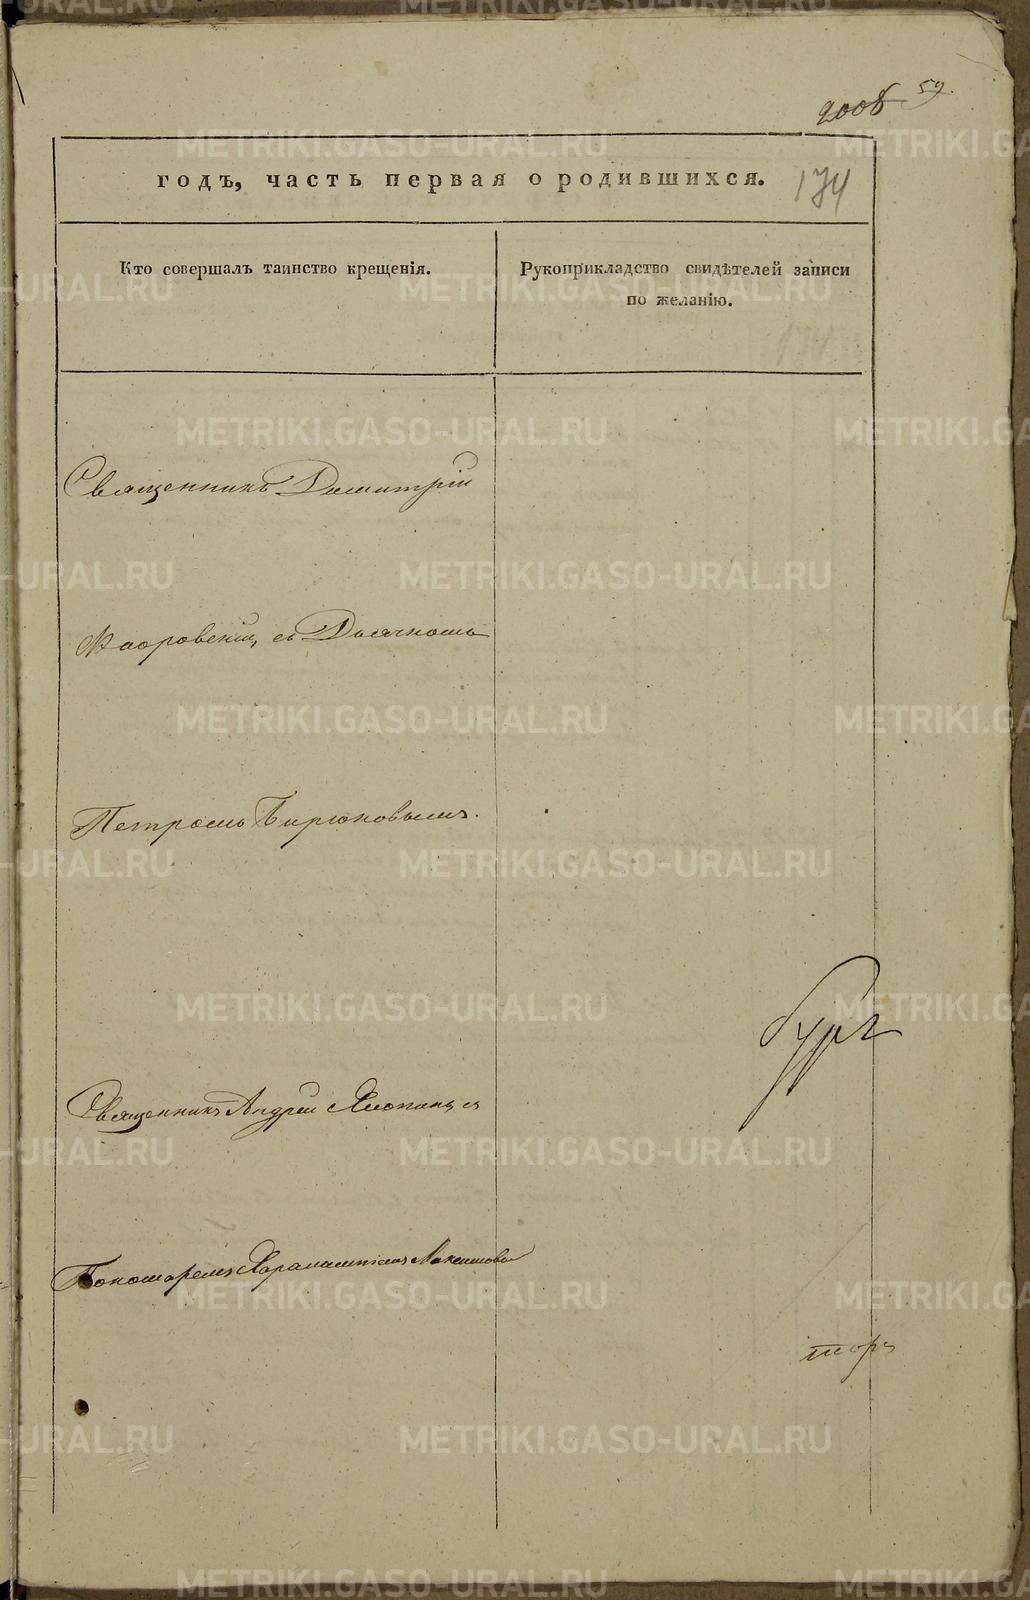 2008 59.
годъ, часть первая о родившихся. 174
Кто совершалъ таинство крещенія.
Рукоприкладство свидѣтелей записи
по желанію.
Священникъ Димитрій
съ Дьячкомъ
Петромъ Бирюковымъ.
бург
Священникъ Андрей
Пономаремъ
METRIKI.GASO-URAL.RU